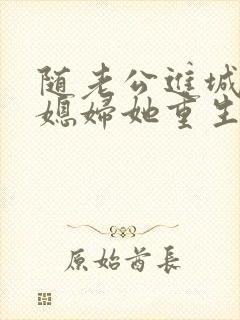 随老公进城
媳妇她重生
原始酋长